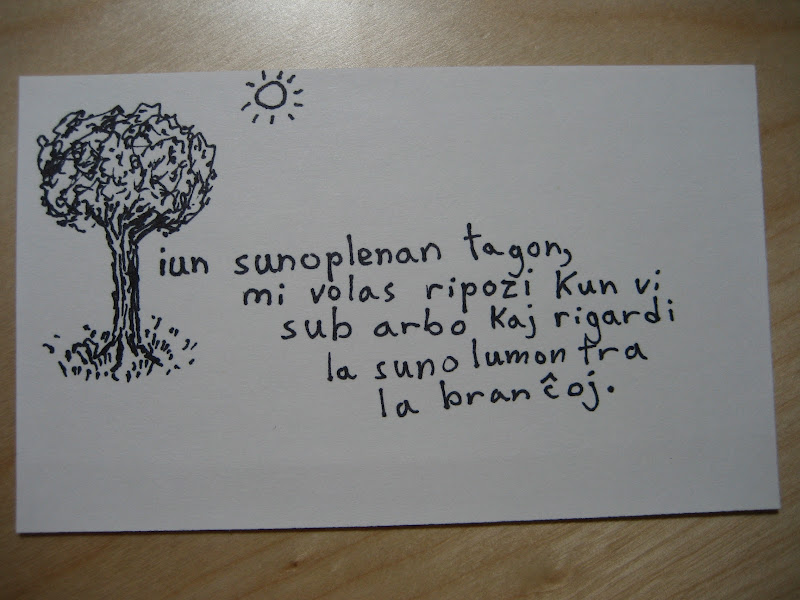 iun sunoplenan tagon,
mi volas ripozi kun vi
sub arbo kaj rigardi
la suno lumon tra
la branĉoj.